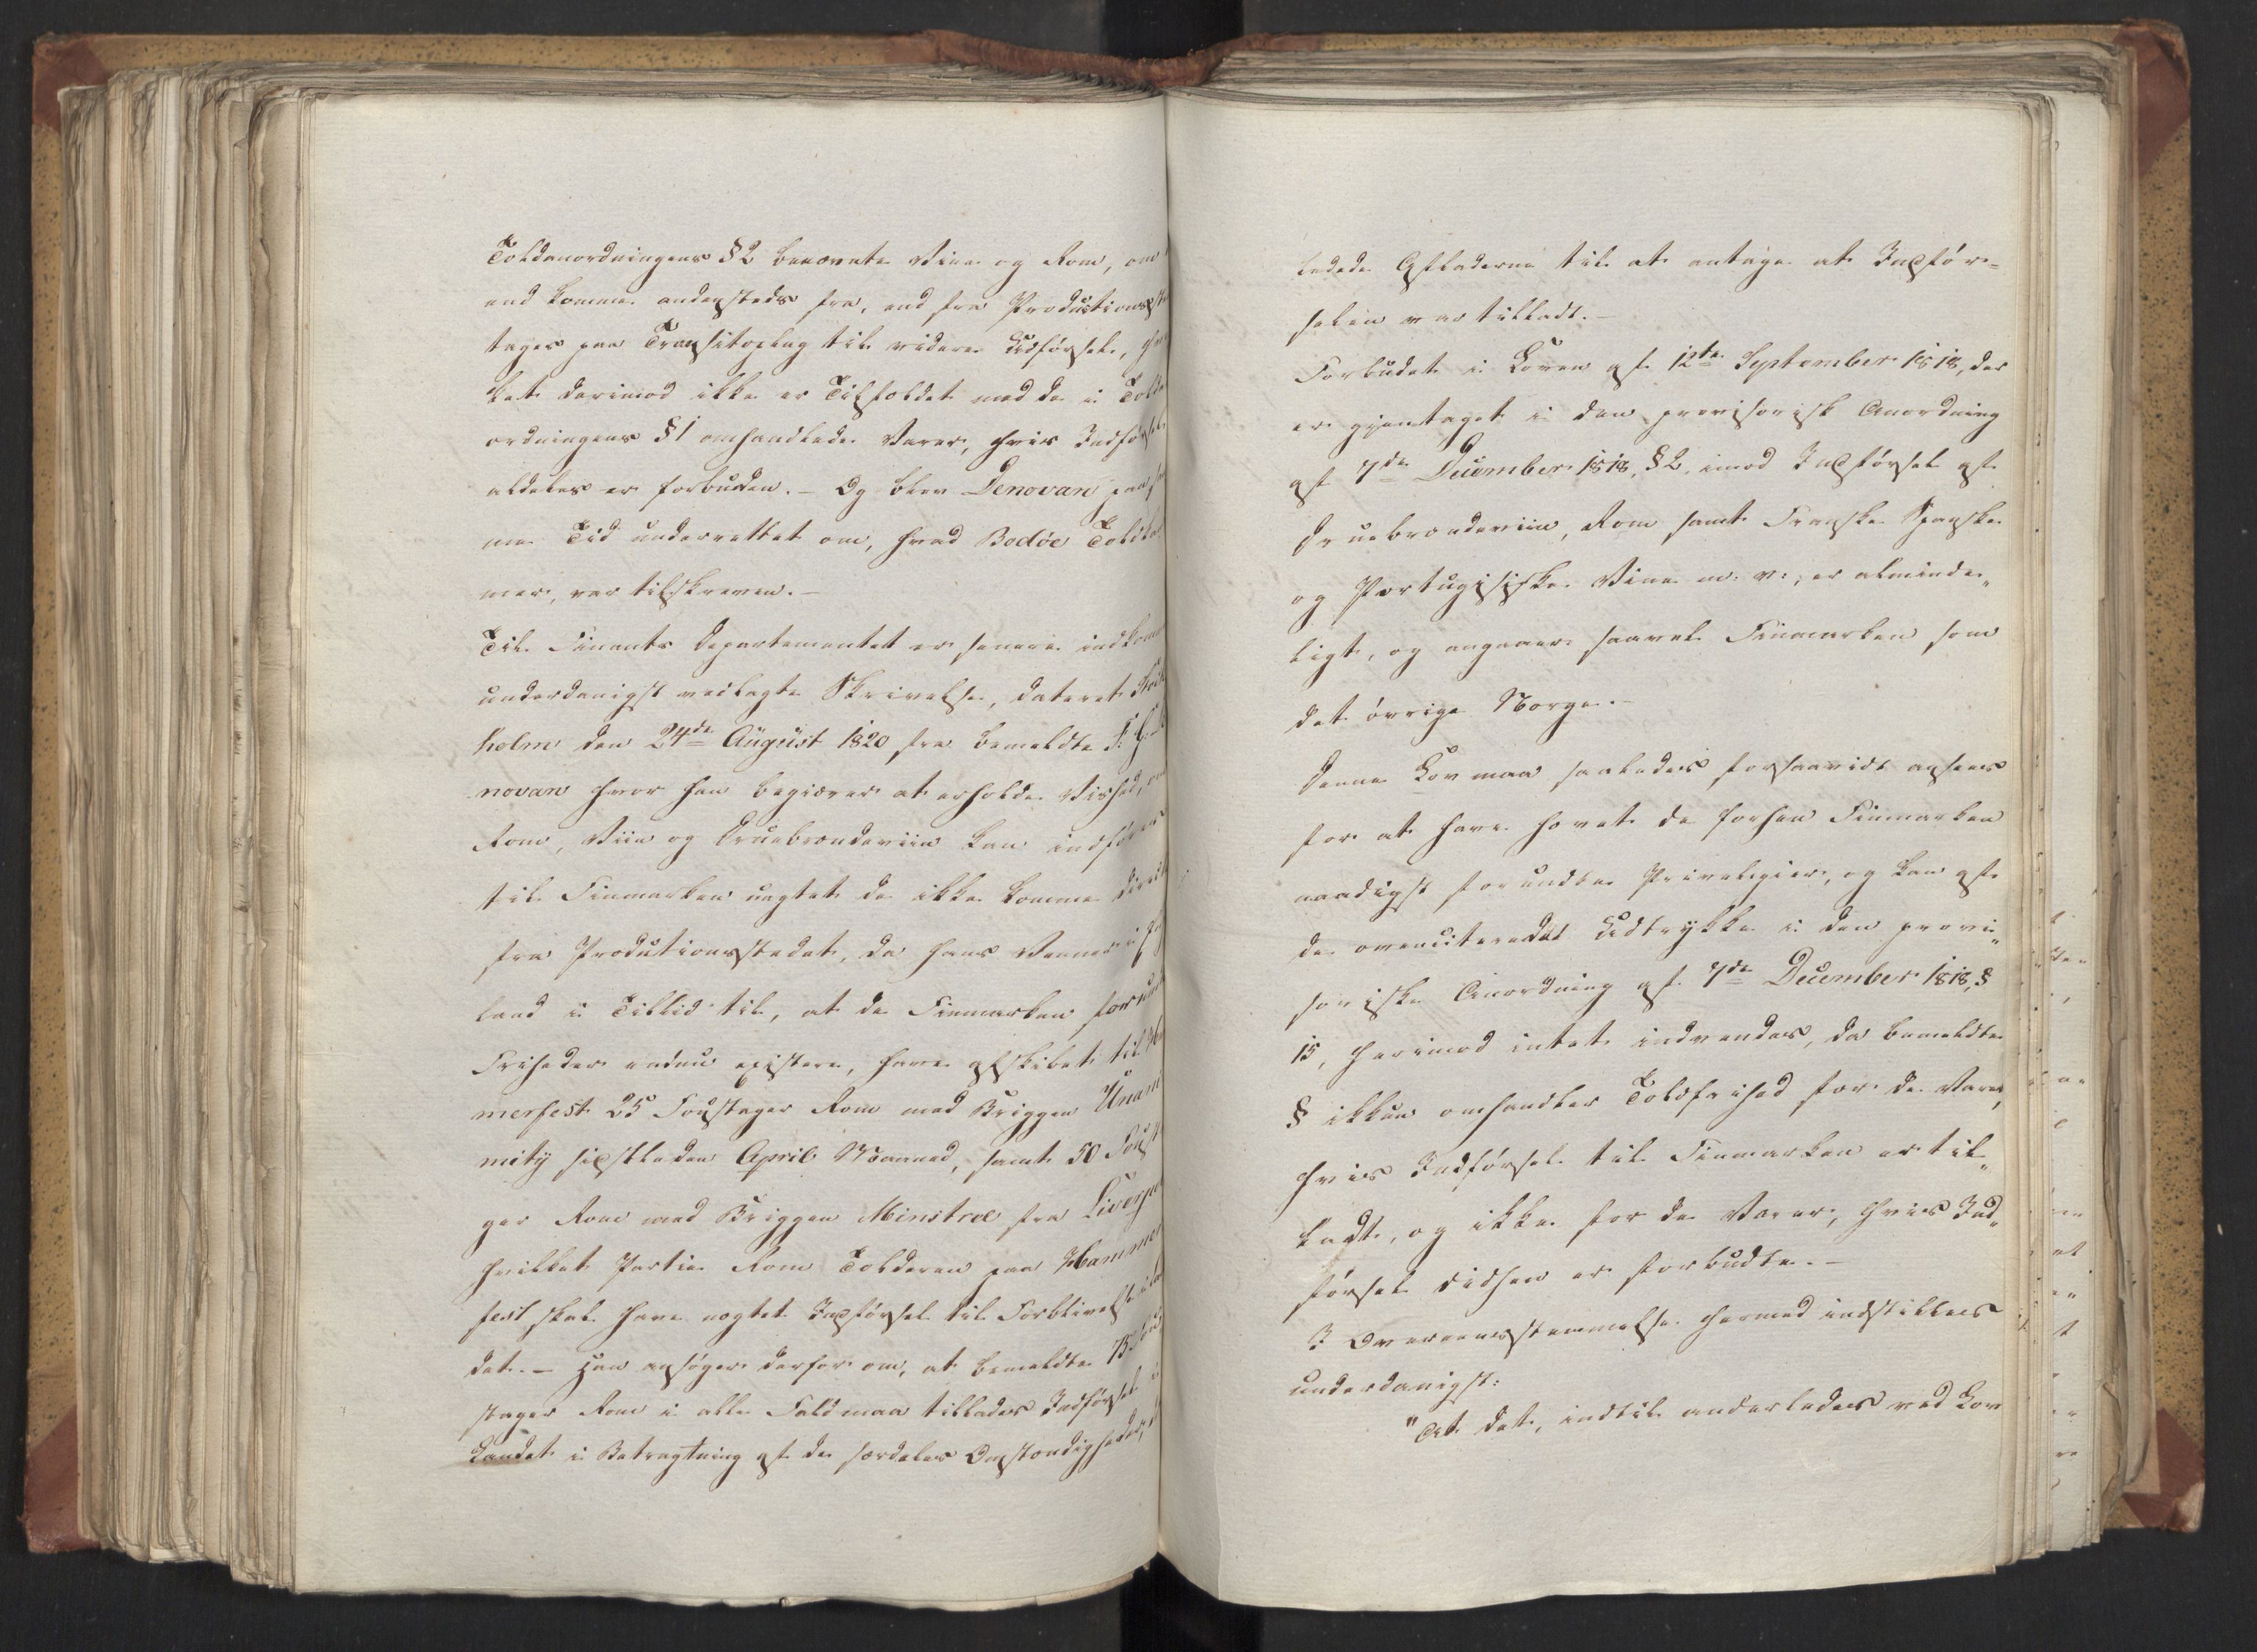 Toldanordningens §2 benævnte Viine og Rom, om
end komme andensteds fra, end fra Productions
tages paa Transitoplag til videre Udførsel,
ket derimod ikke er Tilfældet med de i Told
ordningens §1 omhandlede Varer, hvis Indførsel
aldeles er forbuden. – Og blev Denovan paa
me Tid underrettet om, hvad Bodöe Toldka
mer, var tilskreven. –
Til Finants Departementet er senere indkom
underdanigst vedlagte Skrivelse, dateret Stock
holm den 24de August 1820, fra bemeldte
novan hvor han begiærer at erholde Vished, om
Rom, Viin og Druebrændeviin kan indføres
til Finmarken uagtet de ikke komme directe
fra Productionsstedet, da hans Venner i
land i Tillid til, at de Finmarken forundte
Friheder endnu existere, have afskibet til
merfest 25 Foustager Rom med Briggen Unani
mity sidstleden April Maaned, samt 50 Foust
ger Rom med Briggen Minstrel fra Liverpo
hvilket Partie Rom Tolderen paa Hammer
fest, skal have nægtet Indførsel til Forblivelse i
det. – Han ansøger derfor om, at bemeldte 75
stager Rom i alle Fald maa tillades Indførsel i
Landet i Betragtning af de særdeles Omstændigheder,
ledede Afladerne til at antage at Indfør=
selen var tilladt. –
Forbudet i Loven af 12te September 1818, der
er gjentaget i den provisorisk Anordning
af 7de December 1818, §2, imod Indførsel af
Druebrændeviin, Rom samt Franske Spanske
og Portugisiske Vine m: v:, er alminde„
ligt, og angaaer saavel Finmarken som
det øvrige Norge. –
Denne Lov maa saaledes forsaavidt ansees
for at have hævet de forhen Finmarken
naadigst forundte Privilegier, og kan af
de ovenciterede Udtrykke i den provi„
soriske Anordning af 7de December 1818, §
15, herimod intet indvendes, da bemeldte
§ ikkun omhandler Toldfrihed for de Varer,
hvis Indførsel til Finmarken er til„
ladt, og ikke for de Varer, hvis Ind„
førsel didhen er forbudte. –
I Overeensstemmelse hermed indstilles
underdanigst:
"At det, indtil anderledes ved Lov